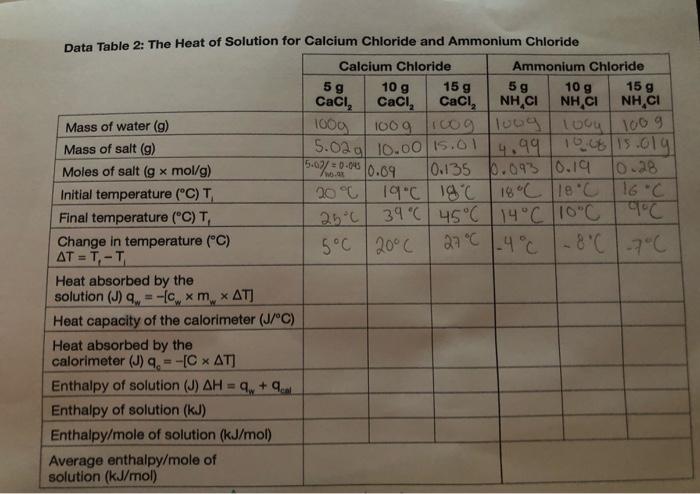 Data Table 2: The Heat of Solution for Calcium Chloride and Ammonium Chloride
Calcium Chloride Ammonium Chloride
5 g CaCl₂ 10 g CaCl₂ 15 g CaCl₂ 5 g NH₄Cl 10 g NH₄Cl 15 g NH₄Cl
Mass of water (g) 100g 100g 100g 100g 100g 100g
Mass of salt (g) 5.02g 10.00 15.01 4.99 15.01g
Moles of salt (g × mol/g) 5.02/ = 0.045 0.09 0.135 0.093 0.19 0.28
Initial temperature (°C) Tᵢ 20°C 19°C 18°C 18°C 18°C 16°C
Final temperature (°C) T_f 25°C 39°C 45°C 14°C 10°C 9°C
Change in temperature (°C) 5°C 20°C 27°C -4°C -8°C -7°C
ΔT = T_f – Tᵢ
Heat absorbed by the
solution (J) q_w = –[c_w × m_w × ΔT]
Heat capacity of the calorimeter (J/°C)
Heat absorbed by the
calorimeter (J) q_c = –[C × ΔT]
Enthalpy of solution (J) ΔH = q_w + q_cal
Enthalpy of solution (kJ)
Enthalpy/mole of solution (kJ/mol)
Average enthalpy/mole of
solution (kJ/mol)